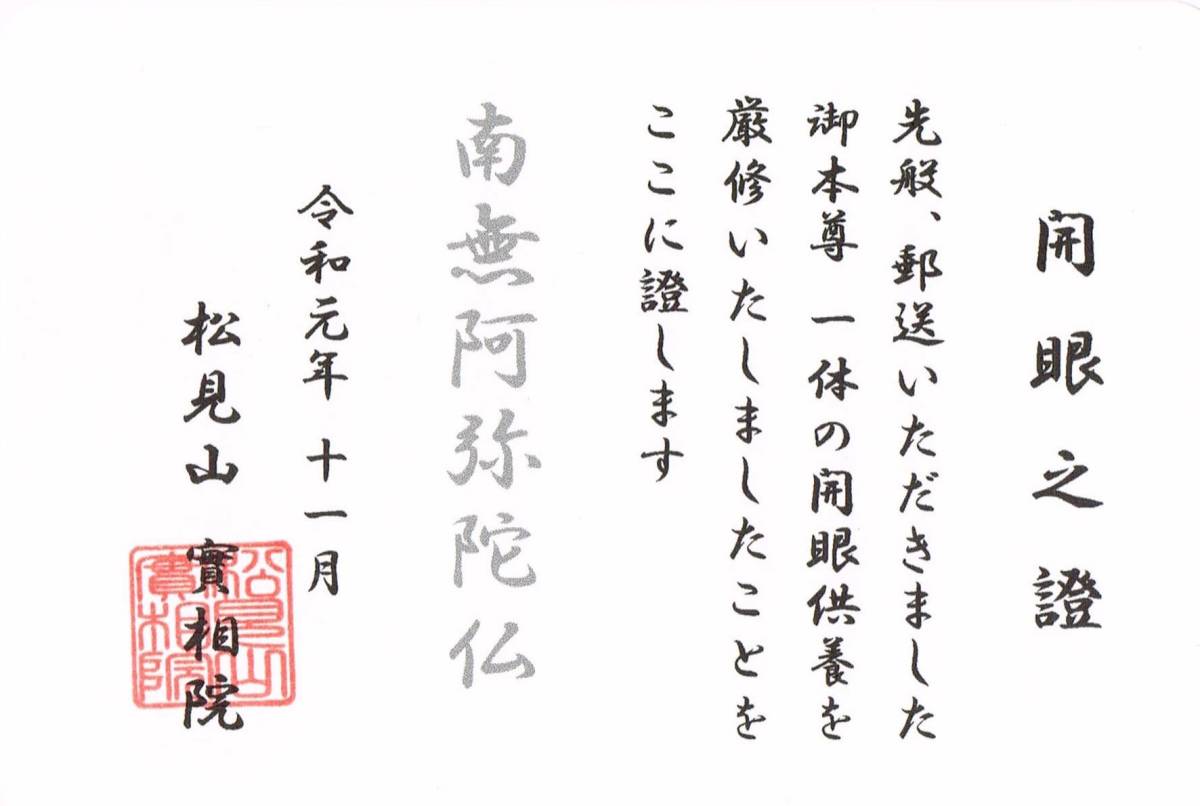 開眼之證
先般、郵送いただきました
御本尊 一体の開眼供養を
厳修いたしましたことを
ここに證します
南無阿弥陀仏
令和元年 十一月
松見山 實相院
松見山
實相院